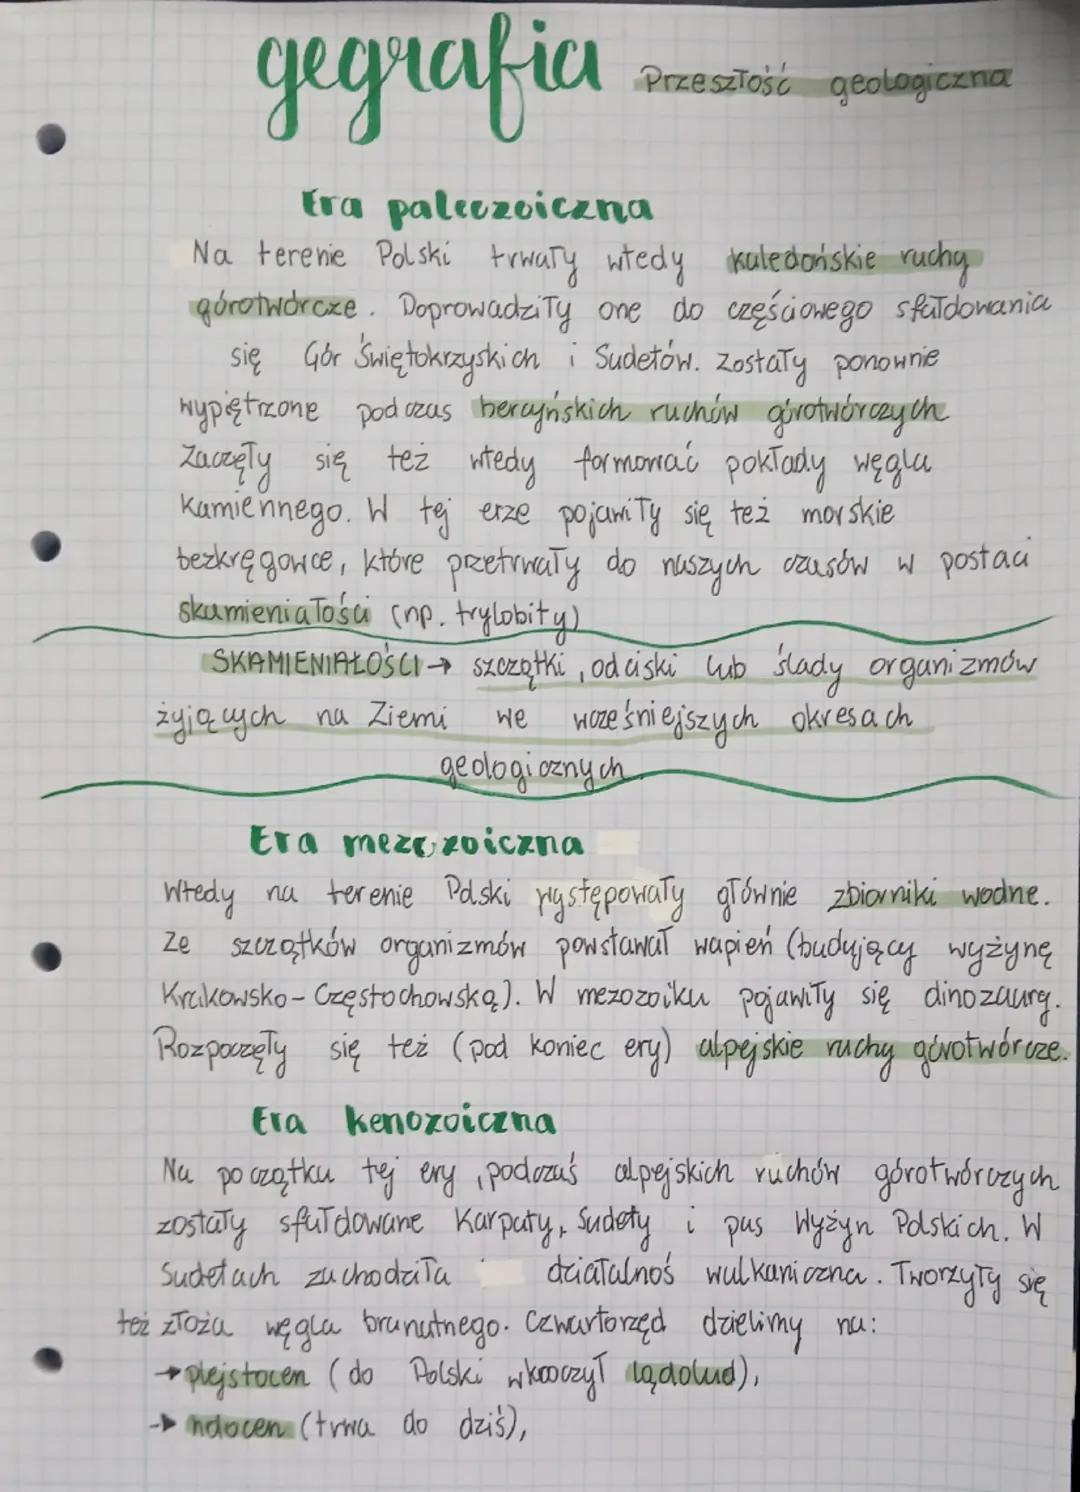 gegrafia Przeszłość geologiczna
Era paleozoiczna
Na terenie Polski trwały wtedy kaledońskie ruchy
górotwórcze. Doprowadziły one do częściowego sfałdowania
się Gór Świętokrzyskich i Sudetów. Zostały ponownie
wypiętrzone podczas hercyńskich ruchów górotwórczych
Zaczęły się też wtedy formować pokłady węgla
kamiennego. W tej erze pojawiły się też morskie
bezkręgowce, które przetrwały do naszych czasów w postaci
skamieniałości (np. trylobity)
SKAMIENIAŁOŚCI → szczątki, odciski lub ślady organizmów
żyjących na Ziemi we wcześniejszych okresach
geologicznych
Era mezozoiczna
Wtedy na terenie Polski występowały głównie zbiorniki wodne.
Ze szczątków organizmów powstawał wapień (budujący wyżynę
Krakowsko-Częstochowską). W mezozoiku pojawiły się dinozaury.
Rozpoczęły się też (pod koniec ery) alpejskie ruchy górotwórcze.
Era kenozoiczna
Na początku tej ery, podczaś alpejskich ruchów górotwórczych
zostały sfałdowane Karpaty, Sudety i pas Wyżyn Polskich. W
Sudetach zachodziła działalnoś wulkaniczna. Tworzyły się
też złoża węgla brunatnego. Czwartorzęd dzielimy na:
→ plejstocen (do Polski wkroczył lądolud),
→ holocen (trwa do dziś),